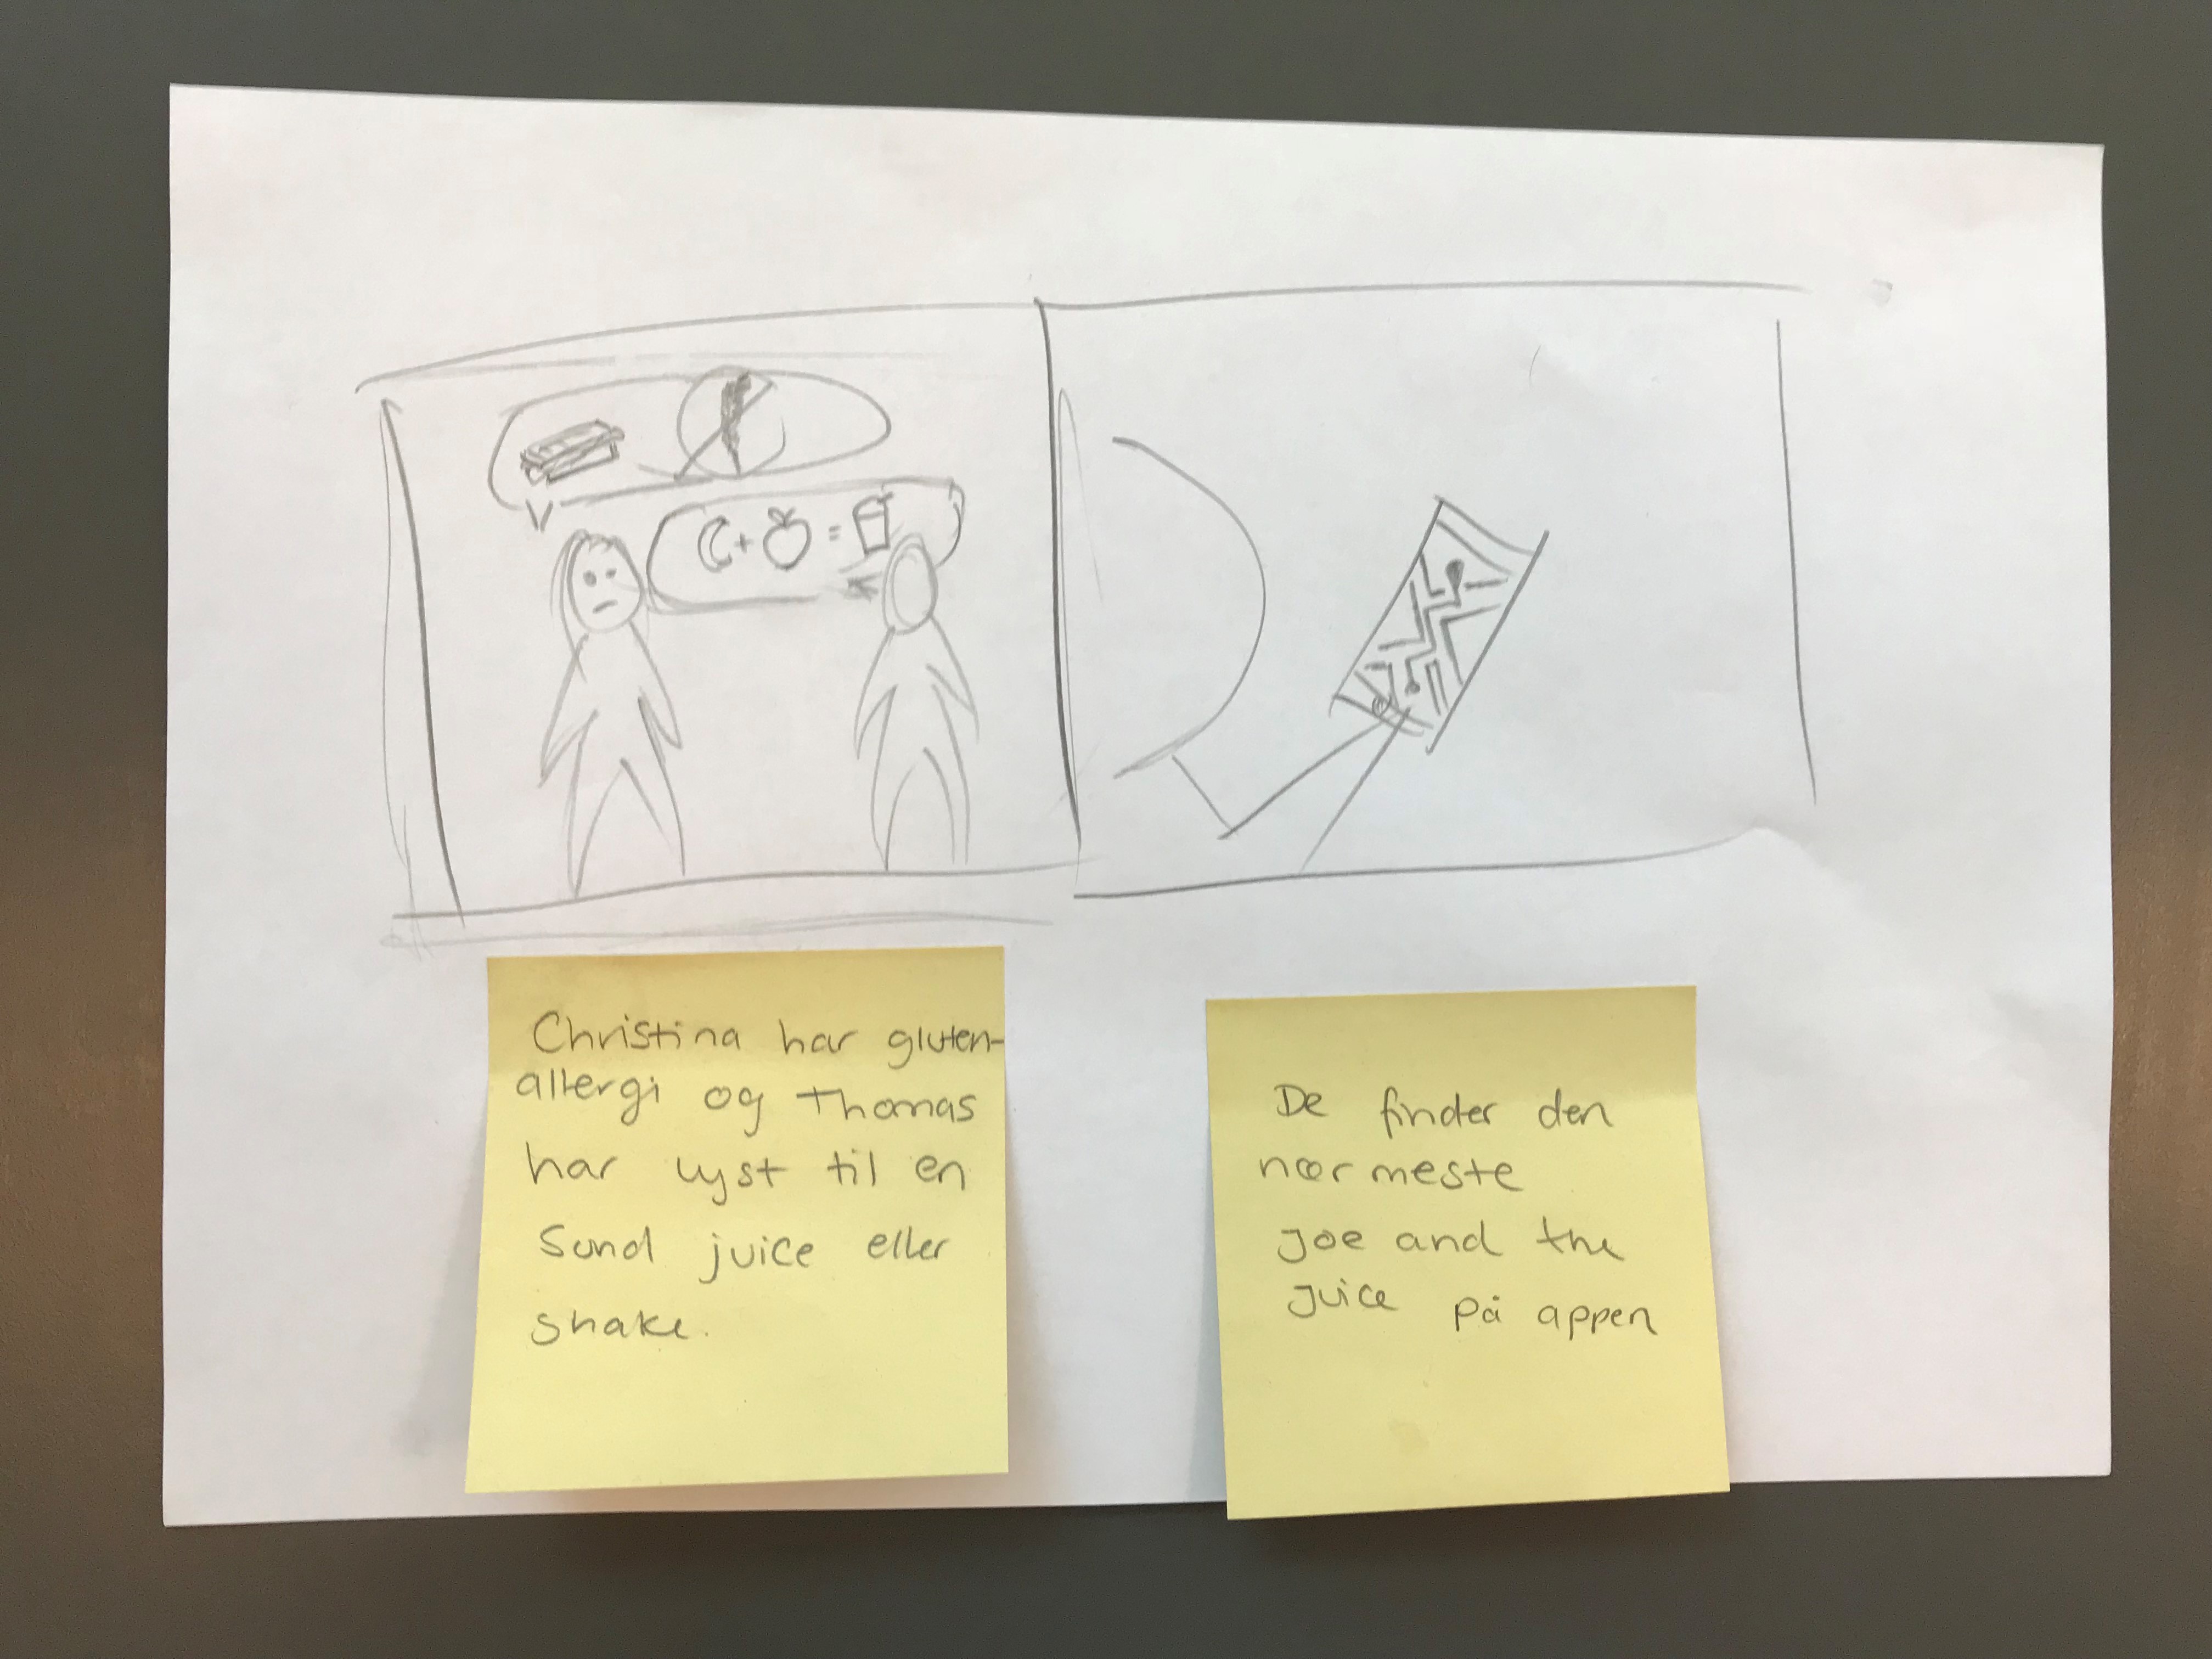 Christina har gluten-
allergi og Thomas
har lyst til en
Sund juice eller
shake.
De finder den
nærmeste
Joe and the
Juice på appen